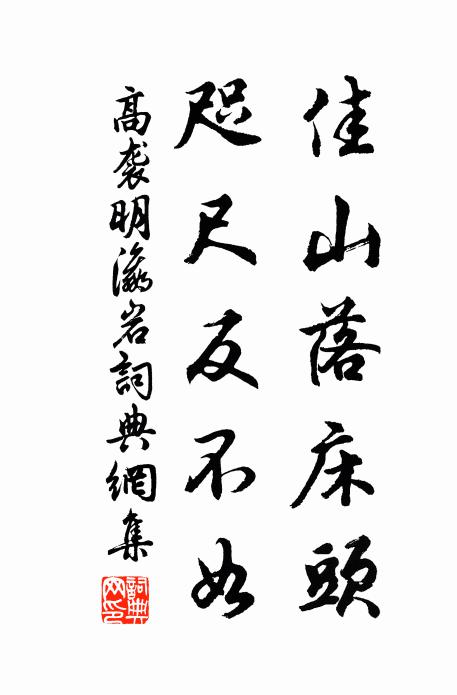 佳山落床頭
咫尺反不如
高袭明瀛岩詞典網集
詞典网印